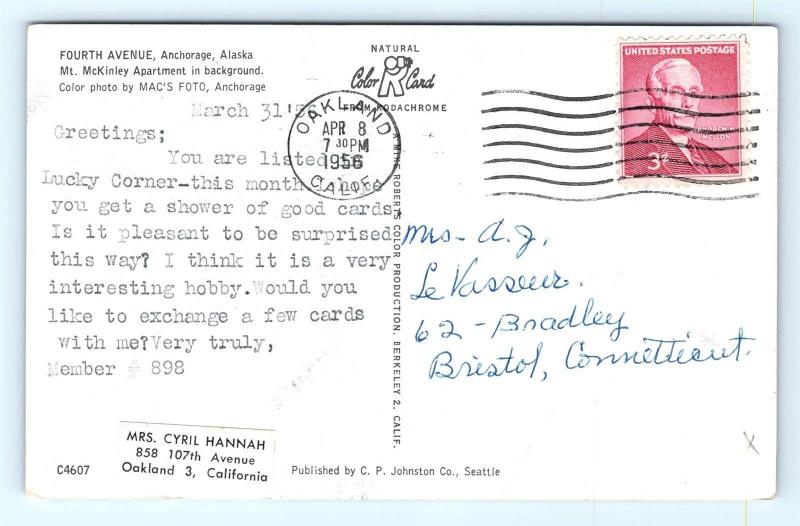 FOURTH AVENUE, Anchorage, Alaska
Mt. McKinley Apartment in background.
Color photo by MAC'S FOTO, Anchorage
NATURAL
Color Card
FROM KODACHROME
UNITED STATES POSTAGE
ANDREW W.
MELLON
3¢
OAKLAND
APR 8
7 30 PM
1956
CALIF.
March 31'56
Greetings;
You are listed in
Lucky Corner-this month I hope
you get a shower of good cards.
Is it pleasant to be surprised
this way? I think it is a very
interesting hobby.Would you
like to exchange a few cards
with me?Very truly,
Member # 898
A MIKE ROBERTS COLOR PRODUCTION. BERKELEY 2. CALIF.
Mrs- A.J.
LeVasseur.
62-Bradley
Bristol, Connetticut.
MRS. CYRIL HANNAH
858 107th Avenue
Oakland 3, California
C4607
Published by C. P. Johnston Co., Seattle
X